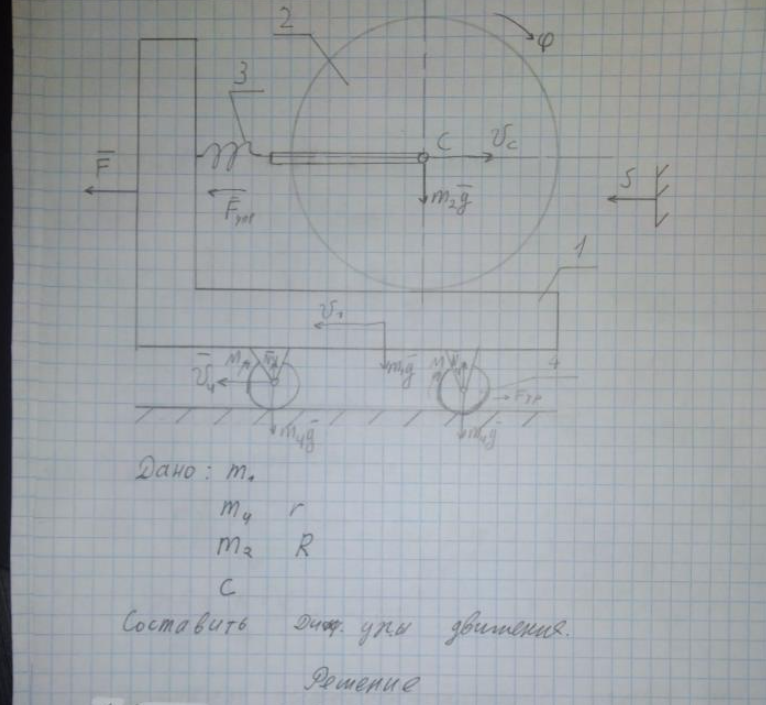 2
φ
3
C
v_c
F̅
F̅упр
m₂g̅
S
1
v₁
m₁g̅
v̅₄
Mтр
N̅
4
Fтр
m₄g̅
m₄g̅
Дано: m₁
m₄ r
m₂ R
C
Составить Диф. ур-ы движения.
Решение